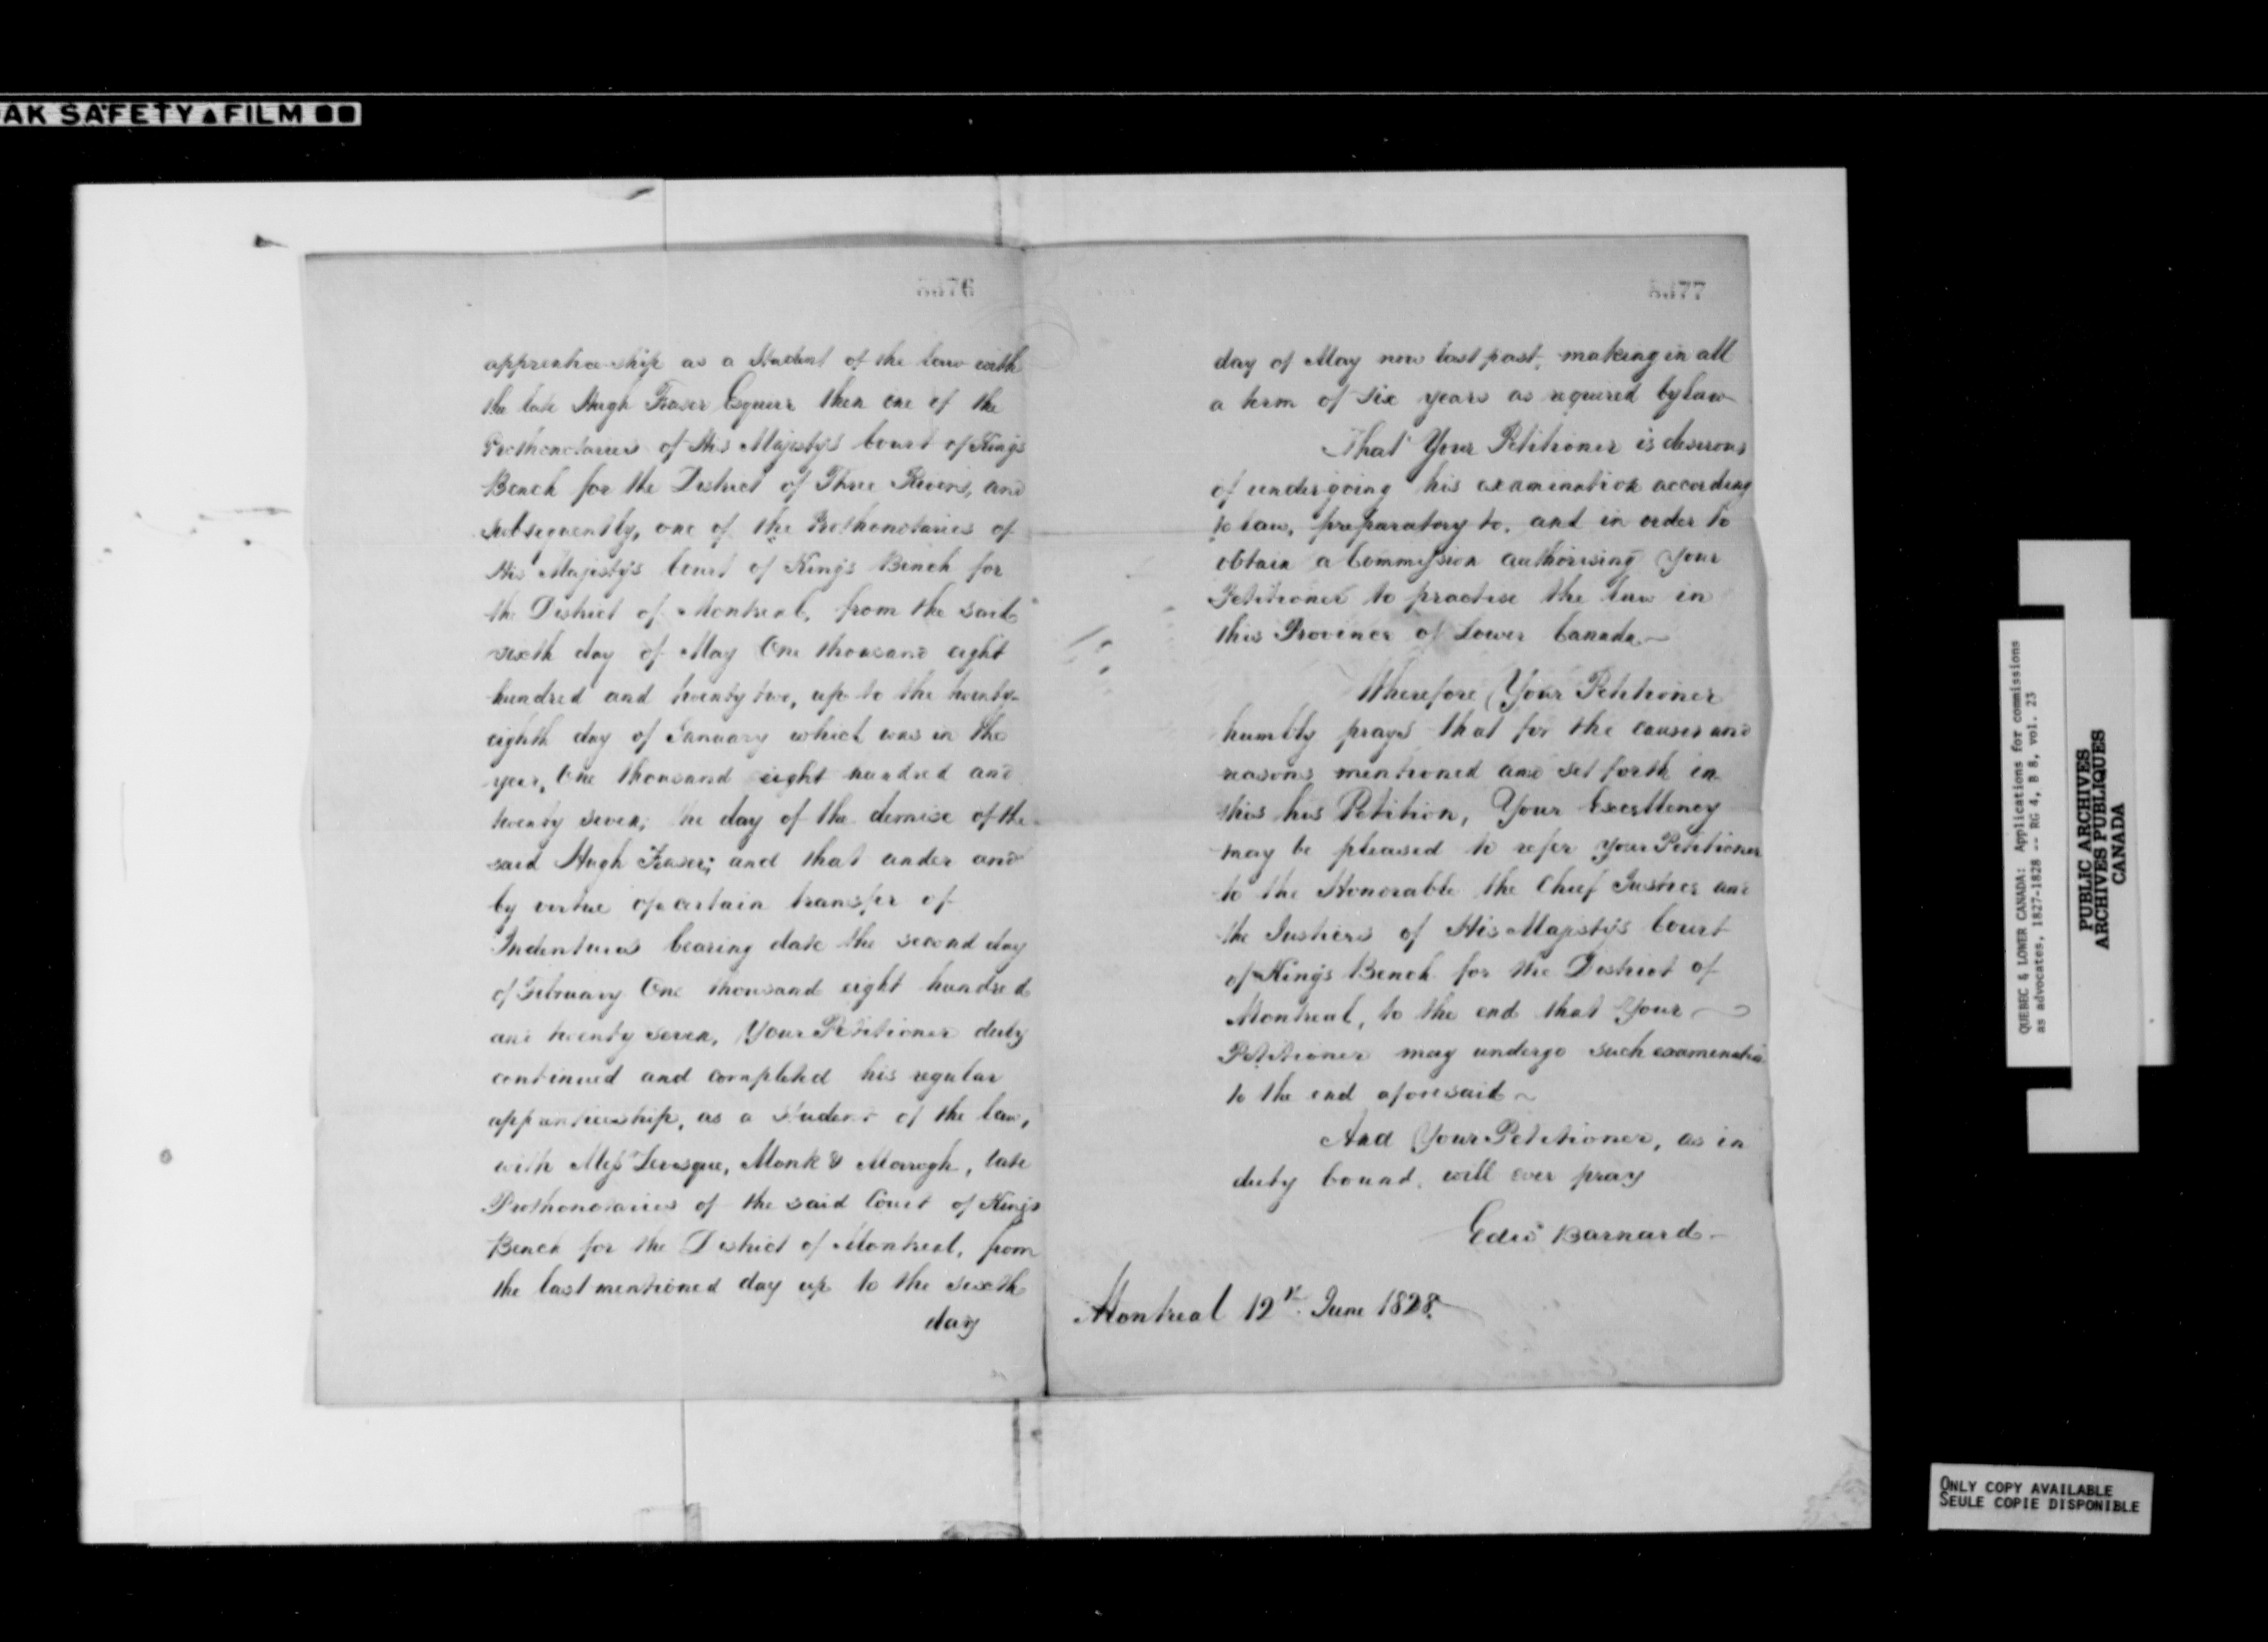 AK SAFETY FILM
6
77
apprenticeship as a Student of the law with
the late Hugh Fraser Esquire then one of the
Prothonotaries of His Majesty's Court of King's
Bench for the District of Three Rivers, and
subsequently, one of the Prothonotaries of
His Majesty's Court of King's Bench for
the District of Montreal, from the said
sixth day of May One thousand eight
hundred and twenty two, up to the twenty-
eighth day of January which was in the
year, One thousand eight hundred and
twenty seven, the day of the demise of the
said Hugh Fraser; and that under and
by virtue of a certain transfer of
Indentures bearing date the second day
of February One thousand eight hundred
and twenty seven, Your Petitioner duly
continued and completed his regular
apprenticeship, as a Student of the law,
with Mess Levesque, Monk & Morrogh, late
Prothonotaries of the said Court of King's
Bench for the District of Montreal, from
the last mentioned day up to the sixth
day
day of May now last past, making in all
a term of six years as required by law
That Your Petitioner is desirous
of undergoing his examination according
to law, preparatory to, and in order to
obtain a Commission authorising Your
Petitioner to practise the law in
this Province of Lower Canada.
Wherefore Your Petitioner
humbly prays that for the causes and
reasons mentioned and set forth in
this his Petition, Your Excellency
may be pleased to refer Your Petitioner
to the Honorable the Chief Justice and
the Justices of His Majesty's Court
of King's Bench for the District of
Montreal, to the end that Your
Petitioner may undergo such examination
to the end aforesaid
And Your Petitioner, as in
duty bound, will ever pray
Edwd Barnard
Montreal 12th June 1828.
QUEBEC & LOWER CANADA: Applications for commissions
as advocates, 1827-1828 -- RG 4, B 8, vol. 23
PUBLIC ARCHIVES
ARCHIVES PUBLIQUES
CANADA
ONLY COPY AVAILABLE
SEULE COPIE DISPONIBLE